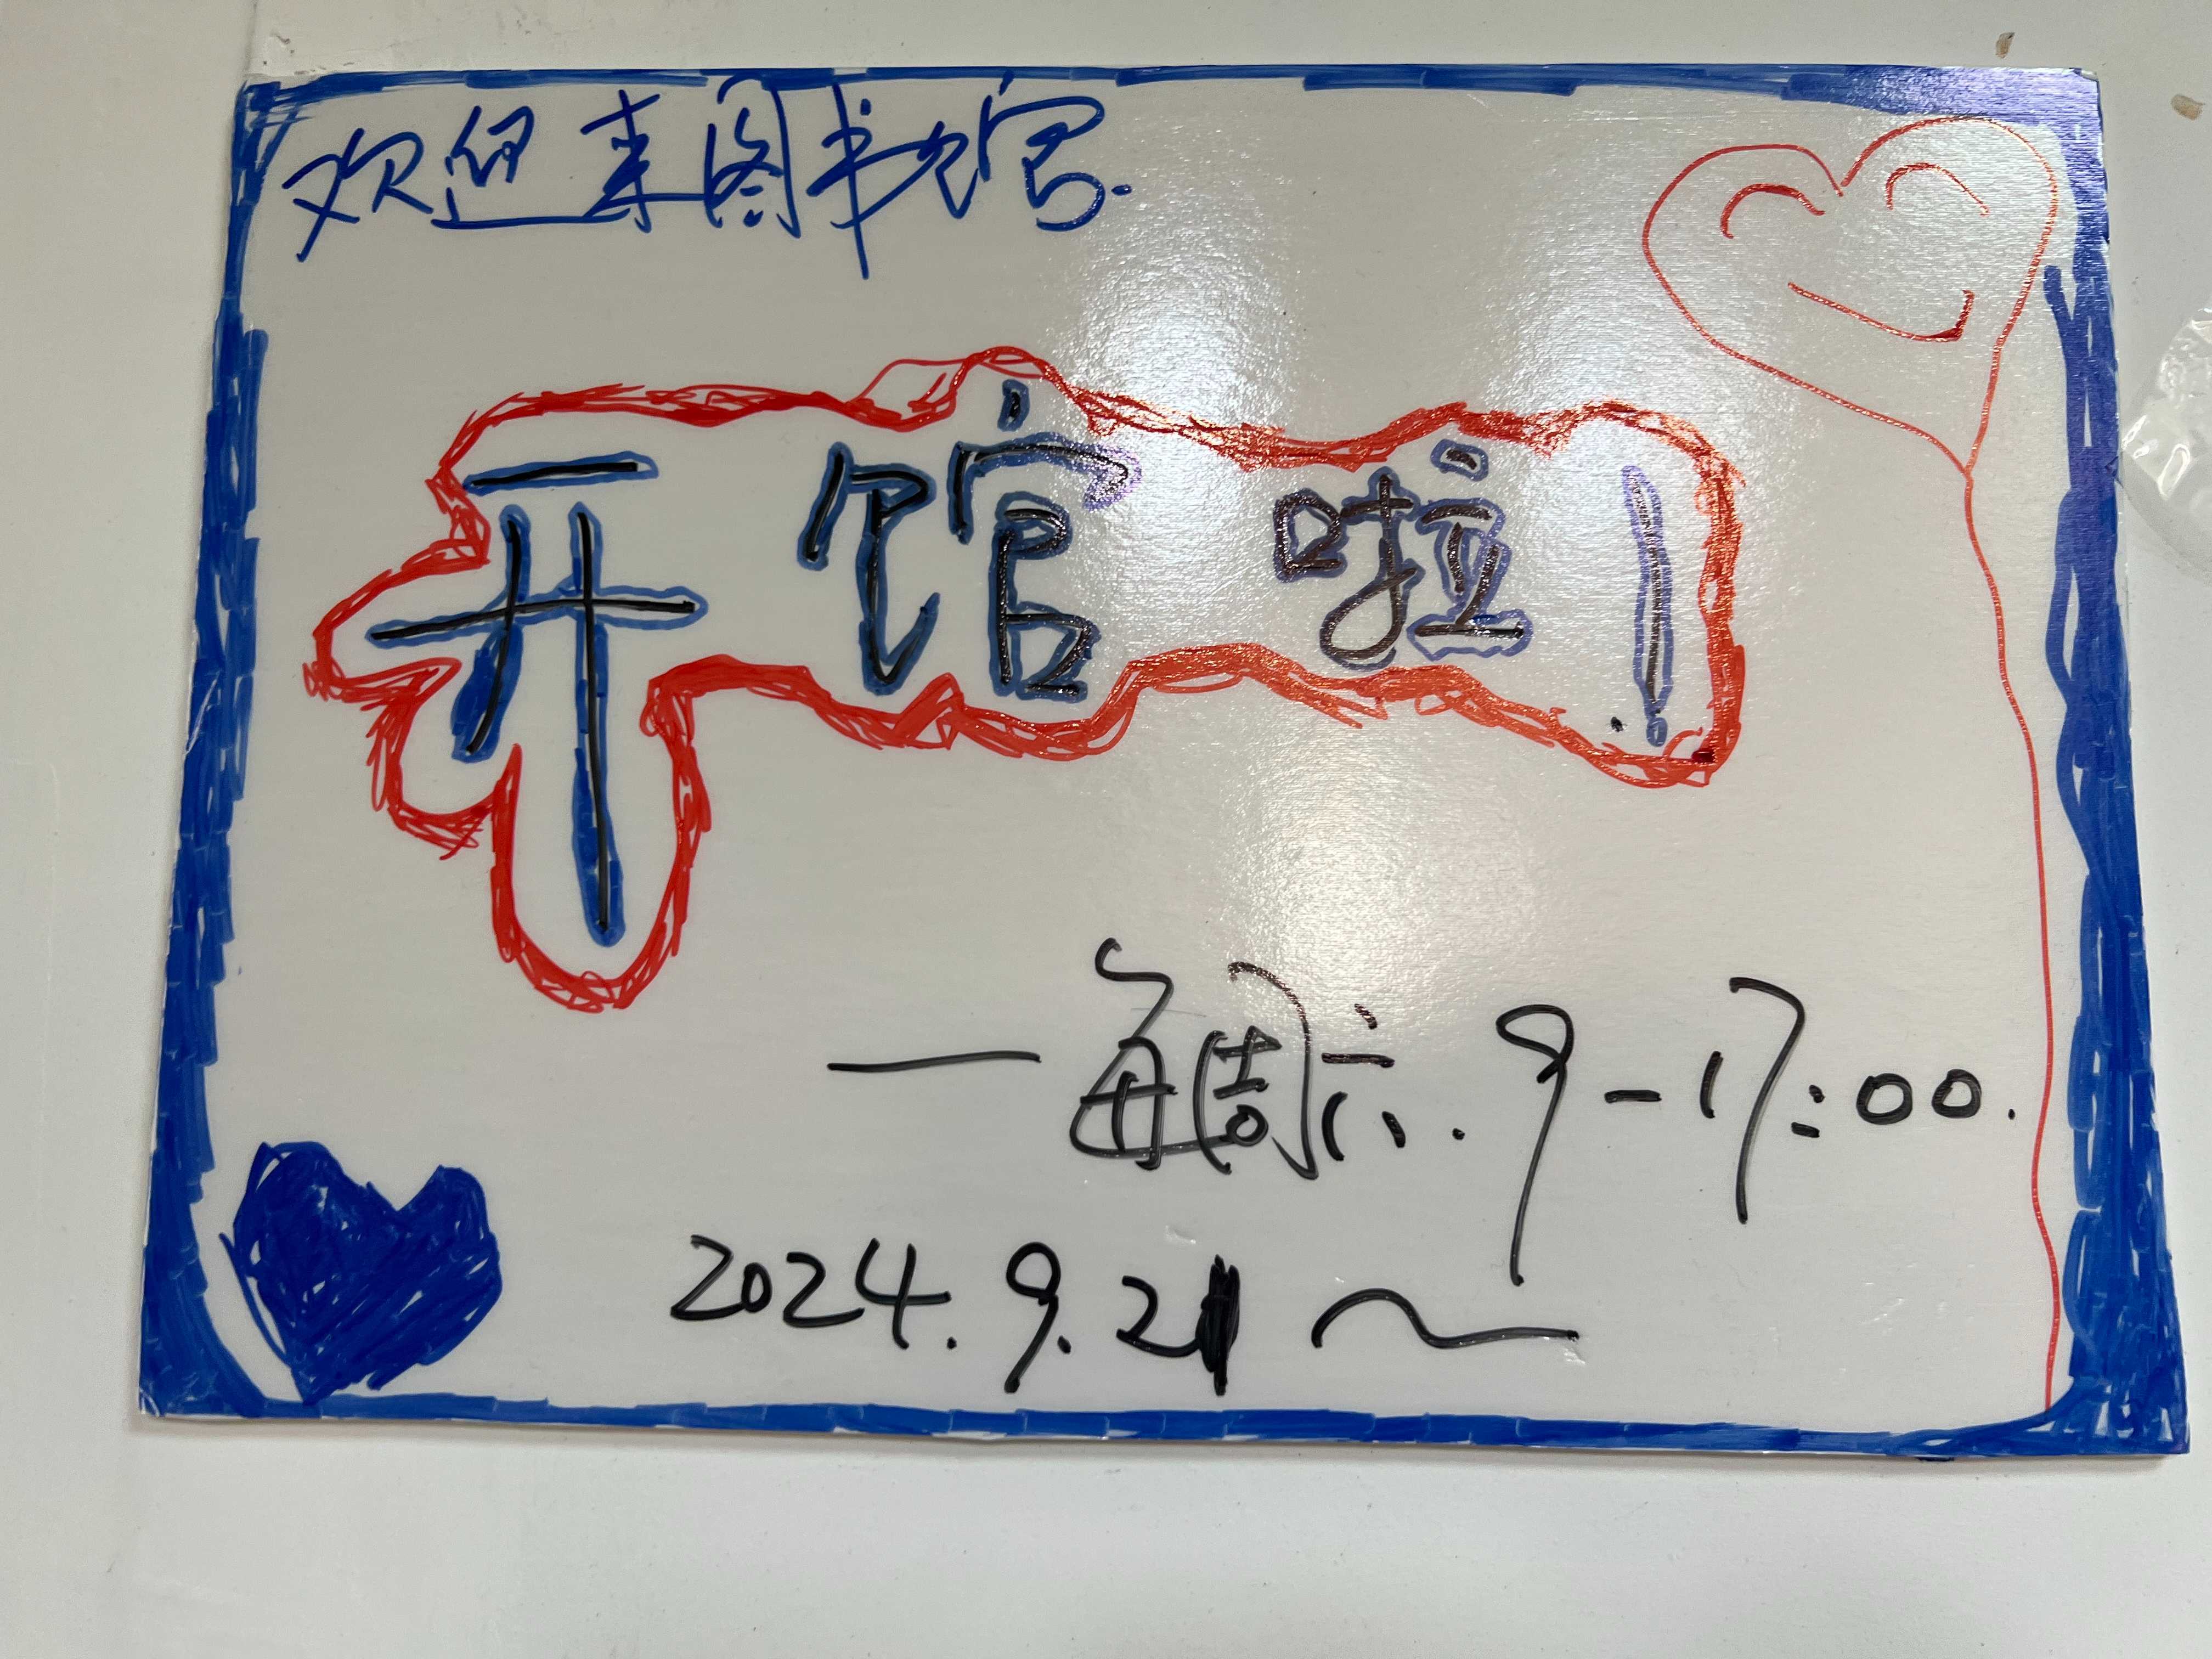 欢迎来图书馆.
开馆啦!
— 每周六. 9-17:00.
2024.9.21 ~